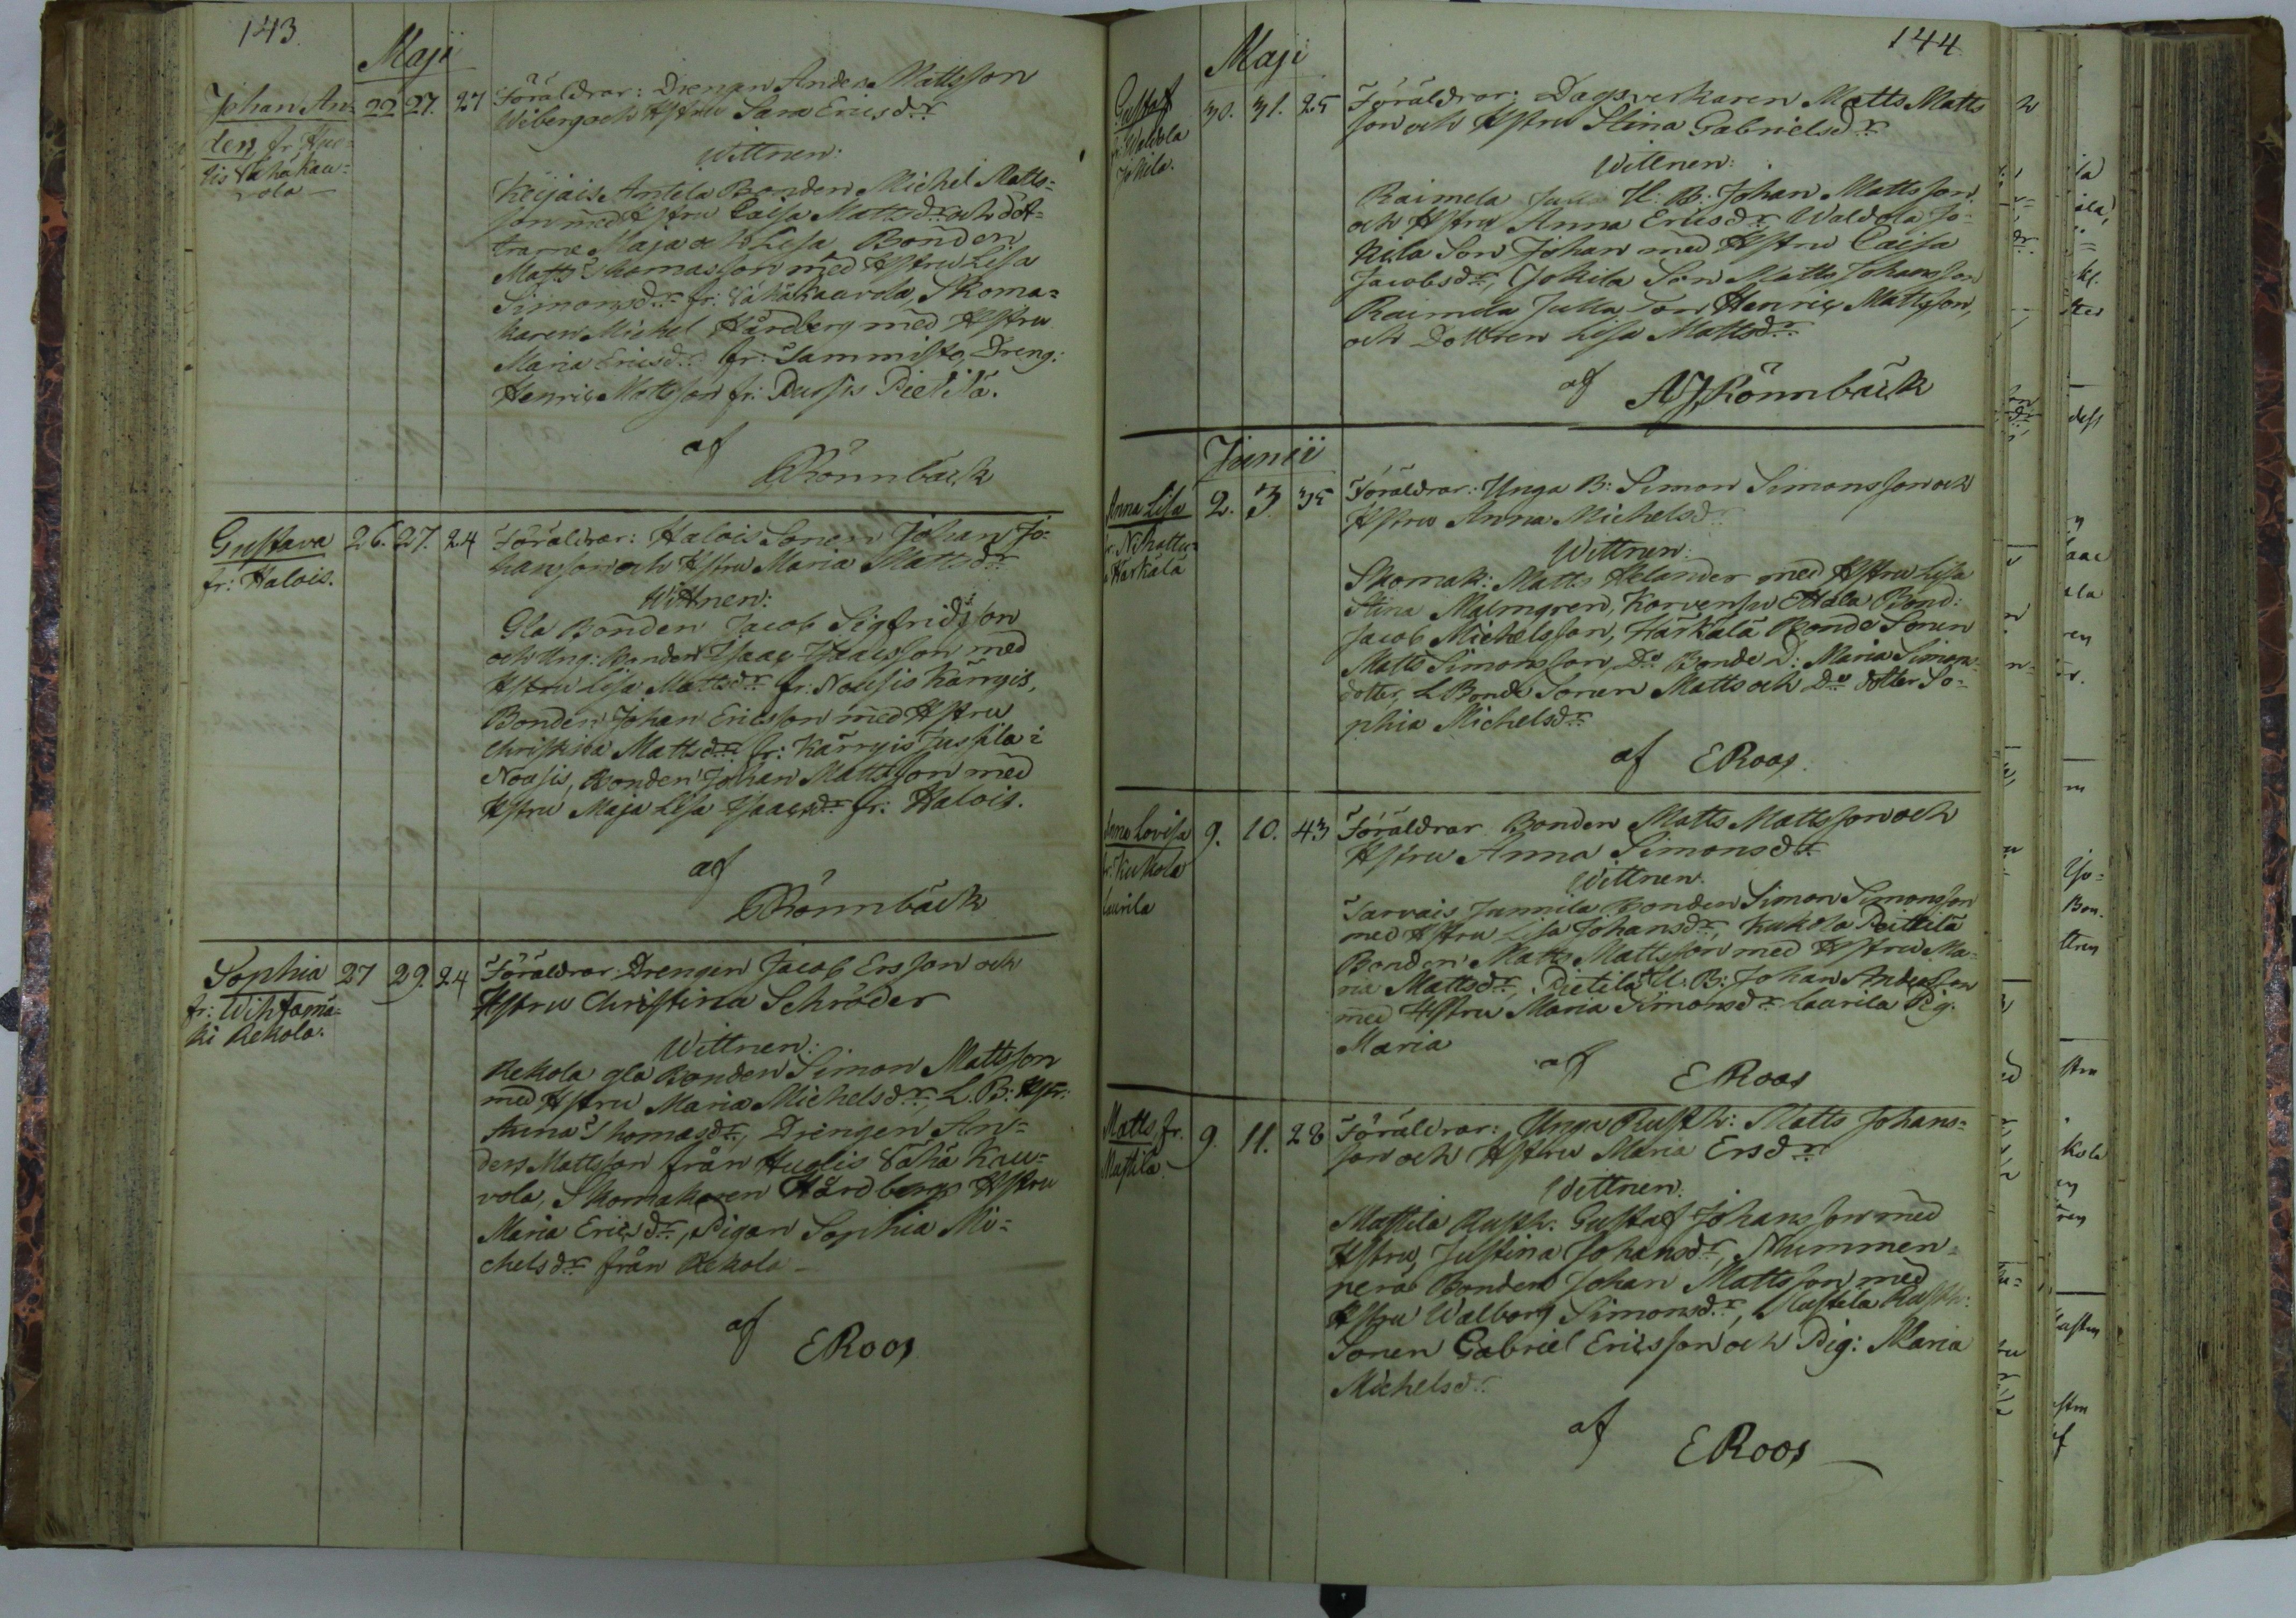 143.
Maji
Johan An=
ders, fr. Huo=
lis Vähä kau=
vola
22 27. 27
Föräldrar: Drengen Anders Mattsson
Wiberg och Hstru Sara Ericsdr
Wittnen:
Keijais Antila Bonden Michel Matts=
son med Hstru Caisa Mattsdr och döt=
trarne Maja och Lisa Bonden
Matts Thomasson med Hstru Lisa
Simonsdr fr: Vähäkauvola, Skoma=
karen Michel Hårdberg med Hstru
Maria Ericsdr fr: Tammisto, Dreng:
Henric Mattsson fr: Pietilä.
af
Rönnbäck
Gustava
fr: Halois.
26. 27. 24
Föräldrar: Halois Sonen Johan Jo=
hansson och Hstru Maria Mattsdr
Wittnen:
Gla Bonden Jacob Sigfridsson
och Ung: Bonden Isaac Isaacsson med
Hstru Lisa Mattsdr fr: Nousis Kärryis,
Bonden Johan Ericsson med Hstru
Christina Mattsdr fr: Kärryis Jussila i
Nousis, Bonden Johan Mattsson med
Hstru Maja Lisa Isaacsdr fr: Halois.
af
Rönnbäck
Sophia
fr: Wihtamä=
ki Rekola.
27 29. 24
Föräldrar Drengen Jacob Ersson och
Hstru Christina Schröder
Wittnen:
Rekola gla Bonden Simon Mattsson
med Hstru Maria Michelsdr, L. B: Hstr:
Anna Thomasdr, Drengen An=
ders Mattsson från Huolis Vähä Kau=
vola, Skomakaren Hårdbergs Hstru
Maria Ericsdr, Pigan Sophia Mi=
chelsdr från Rekola
af
E Roos
144
Maji
Gustaf
fr: Waldola
Jokila.
30. 31. 25
Föräldrar: Dagsverkaren Matts Matts
son och Hstru Stina Gabrielsdr
Wittnen:
Raimela Julla U. B: Johan Mattsson
och Hstru Anna Ericsdr Waldola Jo=
kila Son Johan med Hstru Caisa
Jacobsdr, Jokila Son Matts Johansson
Raimela Julla Son Henric Mattsson,
och Dottren Lisa Mattsdr
af A J Rönnbäck
Junii
Anna Lisa
fr: Nihattu=
la Härkälä
2. 3 35
Föräldrar: Unga B: Simon Simonsson och
Hstru Anna Michelsdr
Wittnen:
Skomak: Matts Helander med Hstru Lisa
Stina Malmgren, Korvensu Ettala Bond:
Jacob Michelsson, Härkälä Bonde Sonen
Matts Simonsson, Do Bonde D: Maria Simons
dotter, L Bonde Sonen Matts och Do dotter So=
phia Michelsdr
af E Roos.
Anna Lovisa
fr: Kukola
Laurila
9. 10. 43
Föräldrar Bonden Matts Mattsson och
Hstru Anna Simonsdr
Wittnen.
Sarvais Junnila Bonden Simon Simonsson
med Hstru Lisa Johansdr, Kukola Peittilä
Bonden Matts Mattsson med Hstru Ma=
ria Mattsdr, Pietilä U. B: Johan Andersson
med Hstru Maria Simonsdr Laurila Pig.
Maria
af E Roos
Matts fr.
Mattila
9. 11. 28
Föräldrar: Unga Rusth: Matts Johans=
son och Hstru Maria Ersdr
Wittnen.
Mattila Rusth: Gustaf Johansson med
Hstru, Justina Johansdr, Nummen=
perä Bonden Johan Mattsson med
Hstru Walborg Simonsdr, Mattila Rusth:
Sonen Gabriel Ericsson och Pig: Maria
Michelsdr
af
E Roos